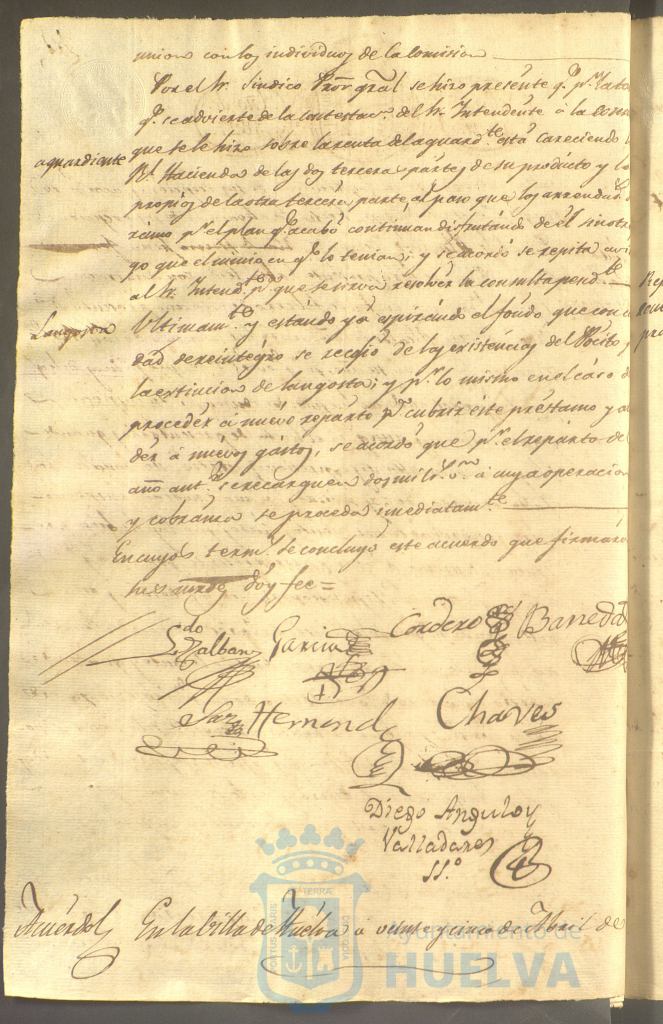 union con los individuos de la Comision
Por el Sr. Sindico Pror. gral se hizo presente q.e p.r lo
q.e se advierte de la contestac.n del Sr. Intendente á la
que se le hizo sobre la renta del aguard.te está careciendo
aguardiente
Rl. Hacienda de las dos terceras partes de su producto y lo
propios de la otra tercera parte, al paso que los arrendad
ramo p.r el plan q.e acabó continúan disfrutándo de él sin otr
go que el mismo en q.e lo tenian; y se acordó se repita
al Sr. Intend.te p.a que se sirva resolver la consulta pend.te
Langosta
Ultimam.te y estándo ya espirándo el fondo que con
dad de reintegro se recogió de las existencias del Pósito
la extincion de langosta; y p.r lo mismo en el cáso d
procedér á nuevo reparto p.a cubrir éste préstamo y
dér á nuevos gástos, se acordó que p.r el repárto de
año ant.r se recarguen dos mil r.s v.n á cuya operacion
y cobránza se procéda imediatam.te
En cuyos térm.s se concluyó este acuerdo que firmáro
sus mrds. dóy fee =
Ldo Balbas Garcia Cordero Baneda
Saz Hernand Chaves
Diego Angulo y
Valladares
SS.o
Acuérdo En la Villa de Huélva á veinte y cinco de Abril de
PORTUS MARIS ET TERRAE CUSTODIA
Ayuntamiento de
HUELVA